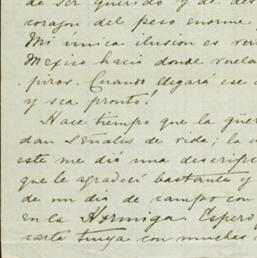 de ser querido y de des
corazon del peso enorme
Mi única ilusion es ver
Mexico hacia donde vuela
piros. Cuando llegará ese
y sea pronto!
Hace tiempo que la güer
dan señales de vida; la
este me dió una descripc
que le agradecí bastante y
de un dia de campo con
en la Hormiga. Espero
carta tuya con muchas